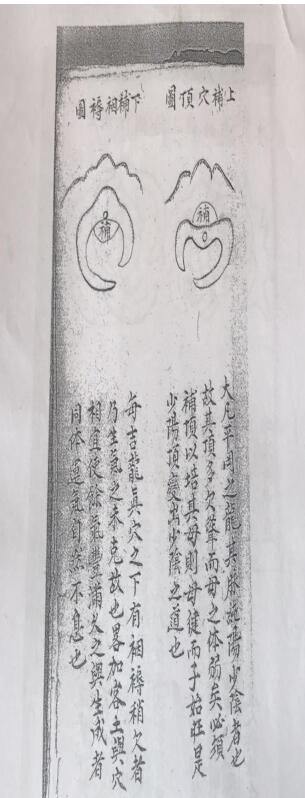 上補穴頂圖
補
大凡之龍其脉陽少陰者也
故其頂多欠聳而母之体弱矣必須
補頂以培其母則母徤而子始旺是
少陽頂變出少陰之道也
下補裀褥圖
補
每吉龍真穴之下有裀褥稍欠者
乃生氣之未克故也畧加客土與穴
相宜使餘氣豊滿久之與生成者
同体運氣自然不息也